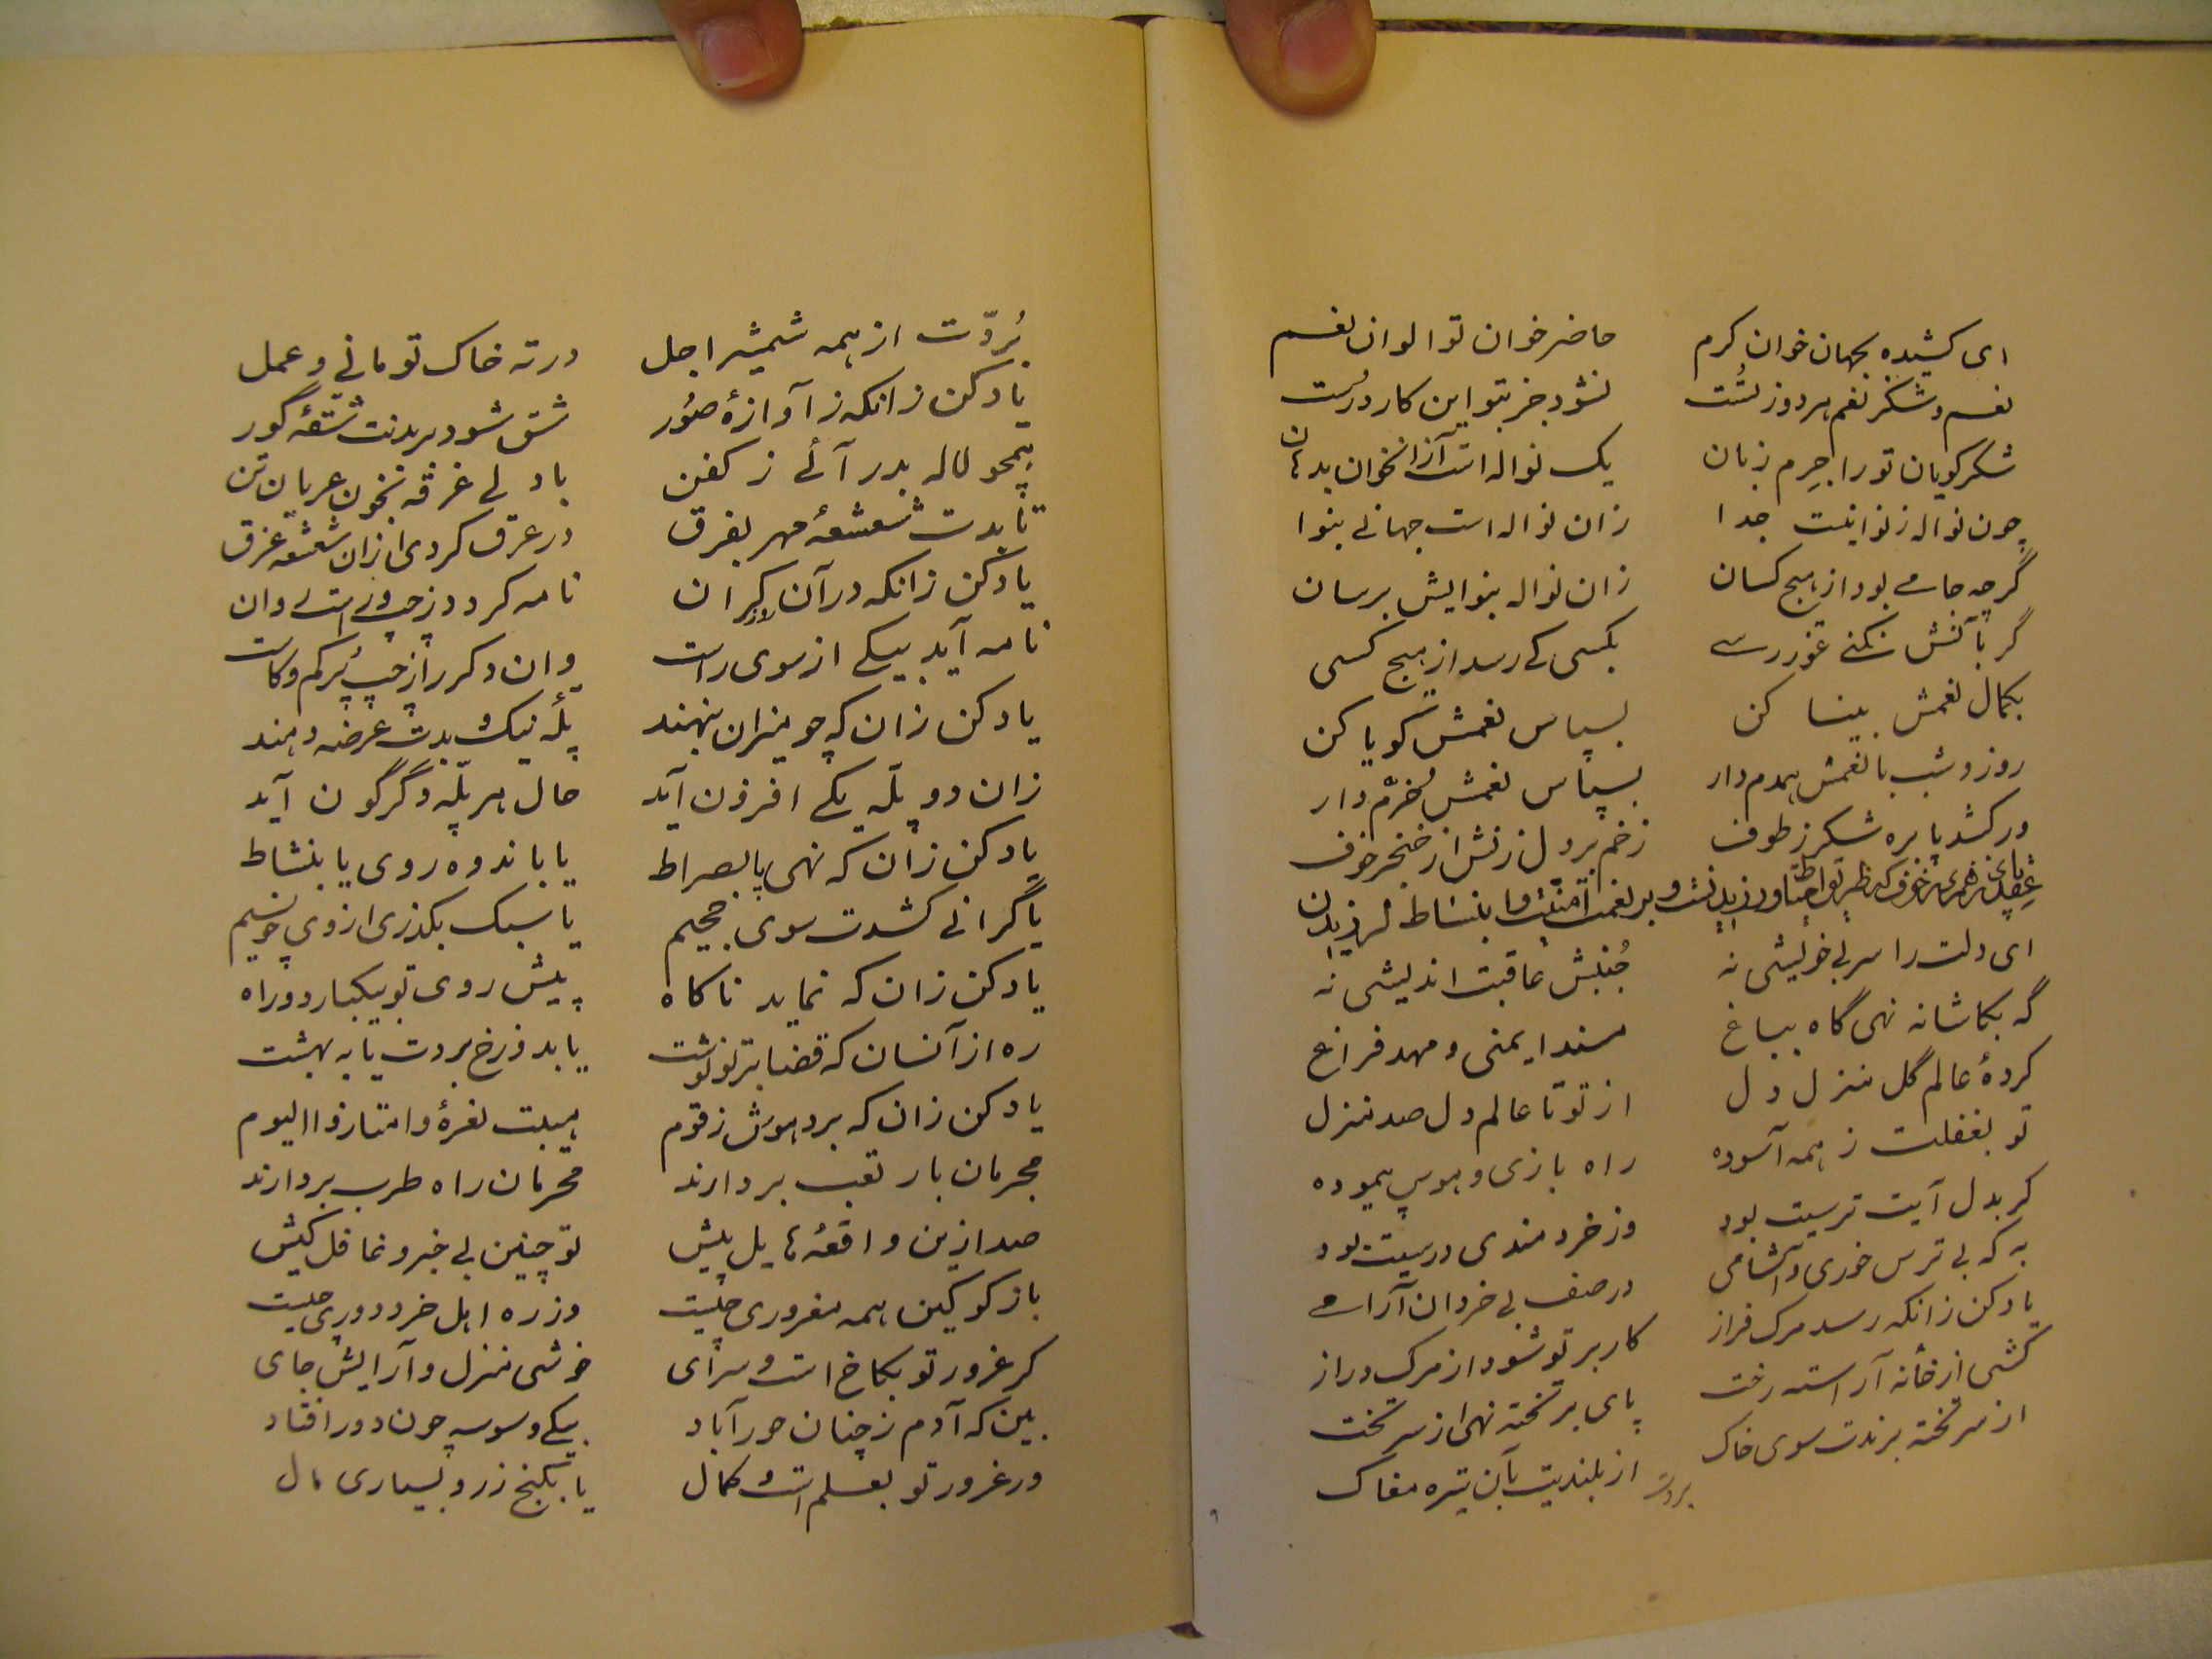 ای کشیده بجهان خوان کرم حاضر خوان تو الوان نعم
نعم و شکر نعم هر دو ز تست نشود جز بتو این کار درست
شکر گویان تو را جرم زبان یک نواله است از آن خوان بدهان
چون نواله ز نوا نیست جدا زان نواله است جهانی بنوا
گرچه جامی بود از هیچ کسان زان نواله بنوایش برسان
گر بآتش نکنی غوررسی بکسی کی رسد از هیچ کسی
بکمال نعمش بینا کن بسپاس نعمش گویا کن
روز و شب با نعمش همدم دار بسپاس نعمش خرّم دار
ور کشد پا بره شکر ز طوف زخم بر دل زنش از خنجر خوف
ای دلت را سر بی خویشی نه جنبش عاقبت اندیشی نه
گه بکاشانه نهی گاه بباغ مسند ایمنی و مهد فراغ
کردهٔ عالم گل منزل دل از تو تا عالم دل صد منزل
تو بغفلت ز همه آسوده راه بازی و هوس پیموده
گر بدل آیت ترسیت بود وز خردمندی درسیت بود
به که بی ترس خوری و آشامی در صف بی خردان آرامی
یاد کن زانکه رسد مرک فراز کار بر تو شود از مرک دراز
کشی از خانه آراسته رخت پای بر تخته نهی از سر تخت
از سر تخته برندت سوی خاک از بلندیت بآن تیره مغاک
بردت
بُردّت از همه شمشیر اجل در ته خاک تو مانی و عمل
یاد کن زانکه ز آوازهٔ صُور شق شود بر بدنت شقهٔ گور
همچو لاله بدر آئی ز کفن با دلی غرقه بخون عریان تن
تابدت شعشعهٔ مهر بفرق در عرق گردی از آن شعشعه غرق
یاد کن زانکه در آن نامه کردد ز چپ و راست دوان
نامه آید بیکی از سوی راست وان دکر را ز چپ پُر کم و کاست
یاد کن زان که چو میزان بنهند پلّه نیک و بدت عرضه دهند
زان دو پلّه یکی افزون آید حال هر پلّه دگرگون آید
یاد کن زان که نهی پا بصراط یا باندوه روی یا بنشاط
یا گرانی کشدت سوی جحیم یا سبک بکذری از وی چو نسیم
یاد کن زان که نماید ناکاه پیش روی تو بیکبار دو راه
ره از آنسان که قضا بر تو نوشت یا بدوزخ بردت یا به بهشت
یاد کن زان که برد هوش ز قوم هیبت نعرهٔ وامتازوا الیوم
مجرمان بار تعب بردارند محرمان راه طرب بردارند
صد ازین واقعهٔ هایل پیش تو چنین بی خبر و غافل کیش
باز کو کین همه مغروری چیست وز ره اهل خرد دوری چیست
کر غرور تو بکاخ است و سرای خوشی منزل و آرایش جای
بین که آدم ز چنان حورآباد بیکی وسوسه چون دور افتاد
ور غرور تو بعلم است و کمال یا بکنج زر و بسیاری مال